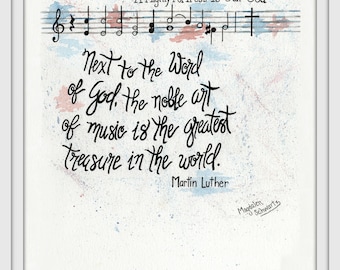 A Mighty Fortress Is Our God
Next to the Word
of God, the noble art
of music is the greatest
treasure in the world.
Martin Luther
Magdalen
Schwartz